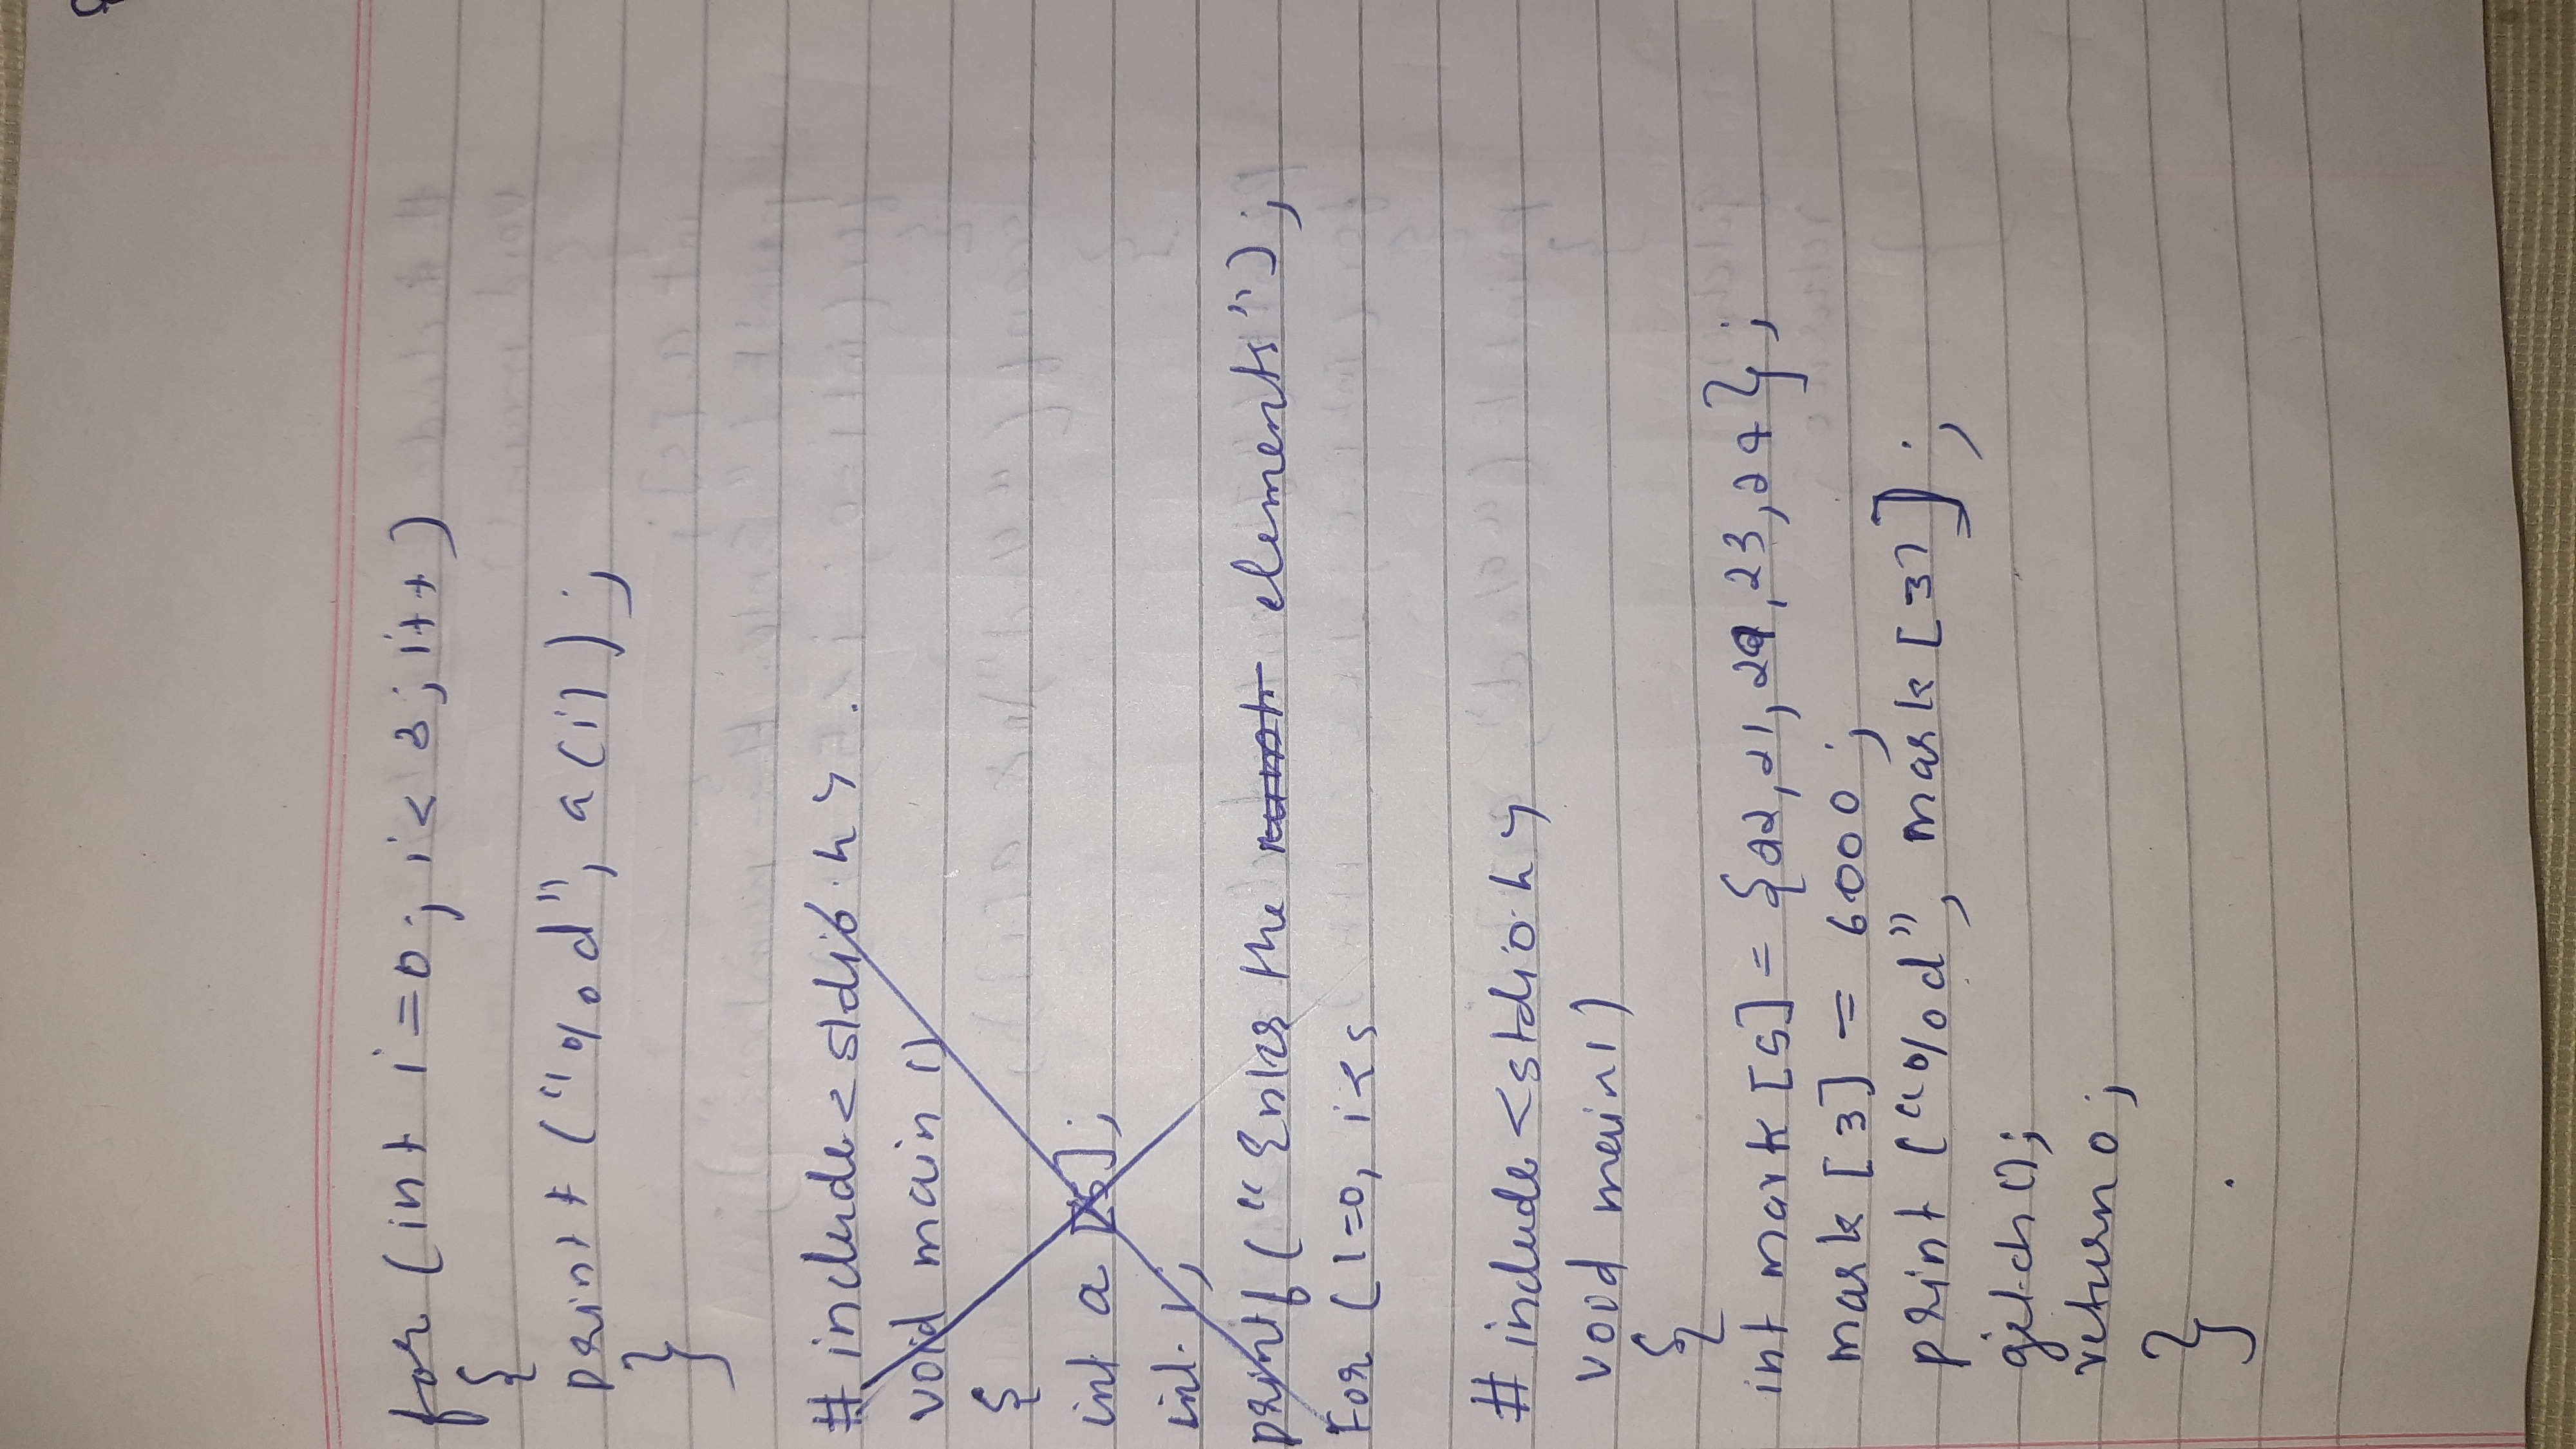 for (int i=0; i< 3; i++)
{
printf ("%d", a(i));
}
# include<stdio.h>.
void main ()
{
int a [5];
int i;
printf ("Enter the elements");
For (i=0, i<5
# include <stdio.h>
void main()
{
int mark [5] = {22,21,29,23,24};
mark [3] = 6000;
print ("%d", mark [3]];
getch ();
return 0;
}